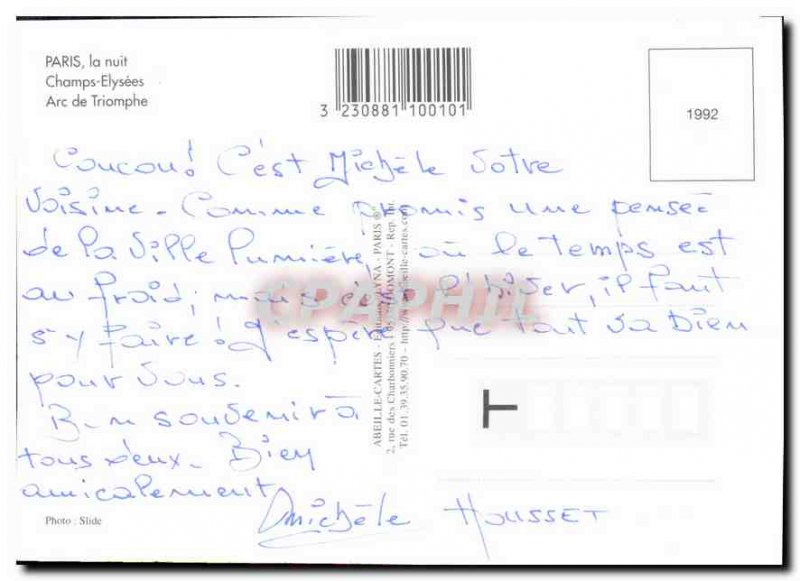 PARIS, la nuit
Champs-Elysées
Arc de Triomphe
3 230881 100101
1992
Coucou! C'est Michèle votre
voisine - Comme promis une pensée
de la Ville Lumière, où le temps est
au froid; mais c'est l'hiver, il faut
s'y faire! J'espère que tout va bien
pour vous.
Bon souvenir à
tous deux. Bien
amicalement
Michèle HOUSSET
Photo : Slide
ABEILLE-CARTES - PARIS ®
2, rue des Charbonniers - DOMONT - Rep. Int.
Tél. 01.39.35.90.70 - http://www.abeille-cartes.com
CPAPHIL